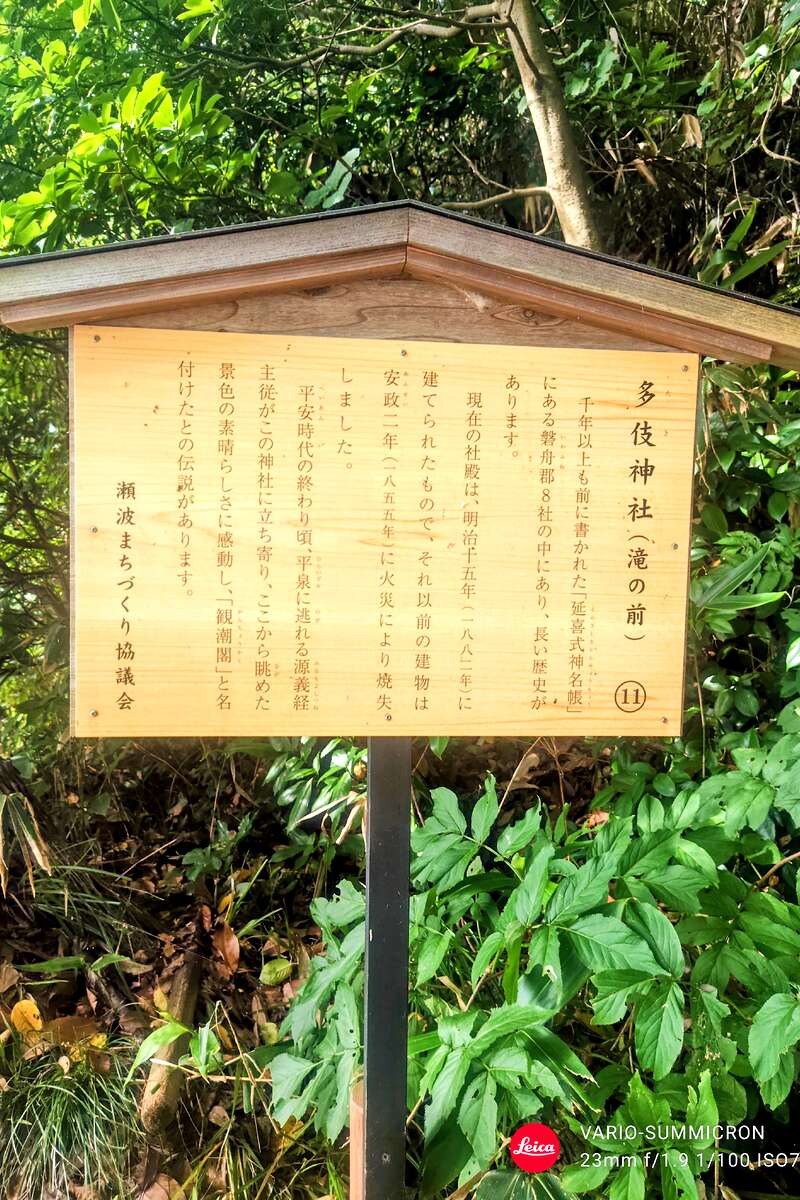 多伎神社（滝の前）
⑪
千年以上も前に書かれた「延喜式神名帳」
にある磐舟郡８社の中にあり、長い歴史が
あります。
現在の社殿は、明治十五年（一八八二年）に
建てられたもので、それ以前の建物は
安政二年（一八五五年）に火災により焼失
しました。
平安時代の終わり頃、平泉に逃れる源義経
主従がこの神社に立ち寄り、ここから眺めた
景色の素晴らしさに感動し、「観潮閣」と名
付けたとの伝説があります。
瀬波まちづくり協議会
Leica
VARIO-SUMMICRON
23mm f/1.9 1/100 ISO7